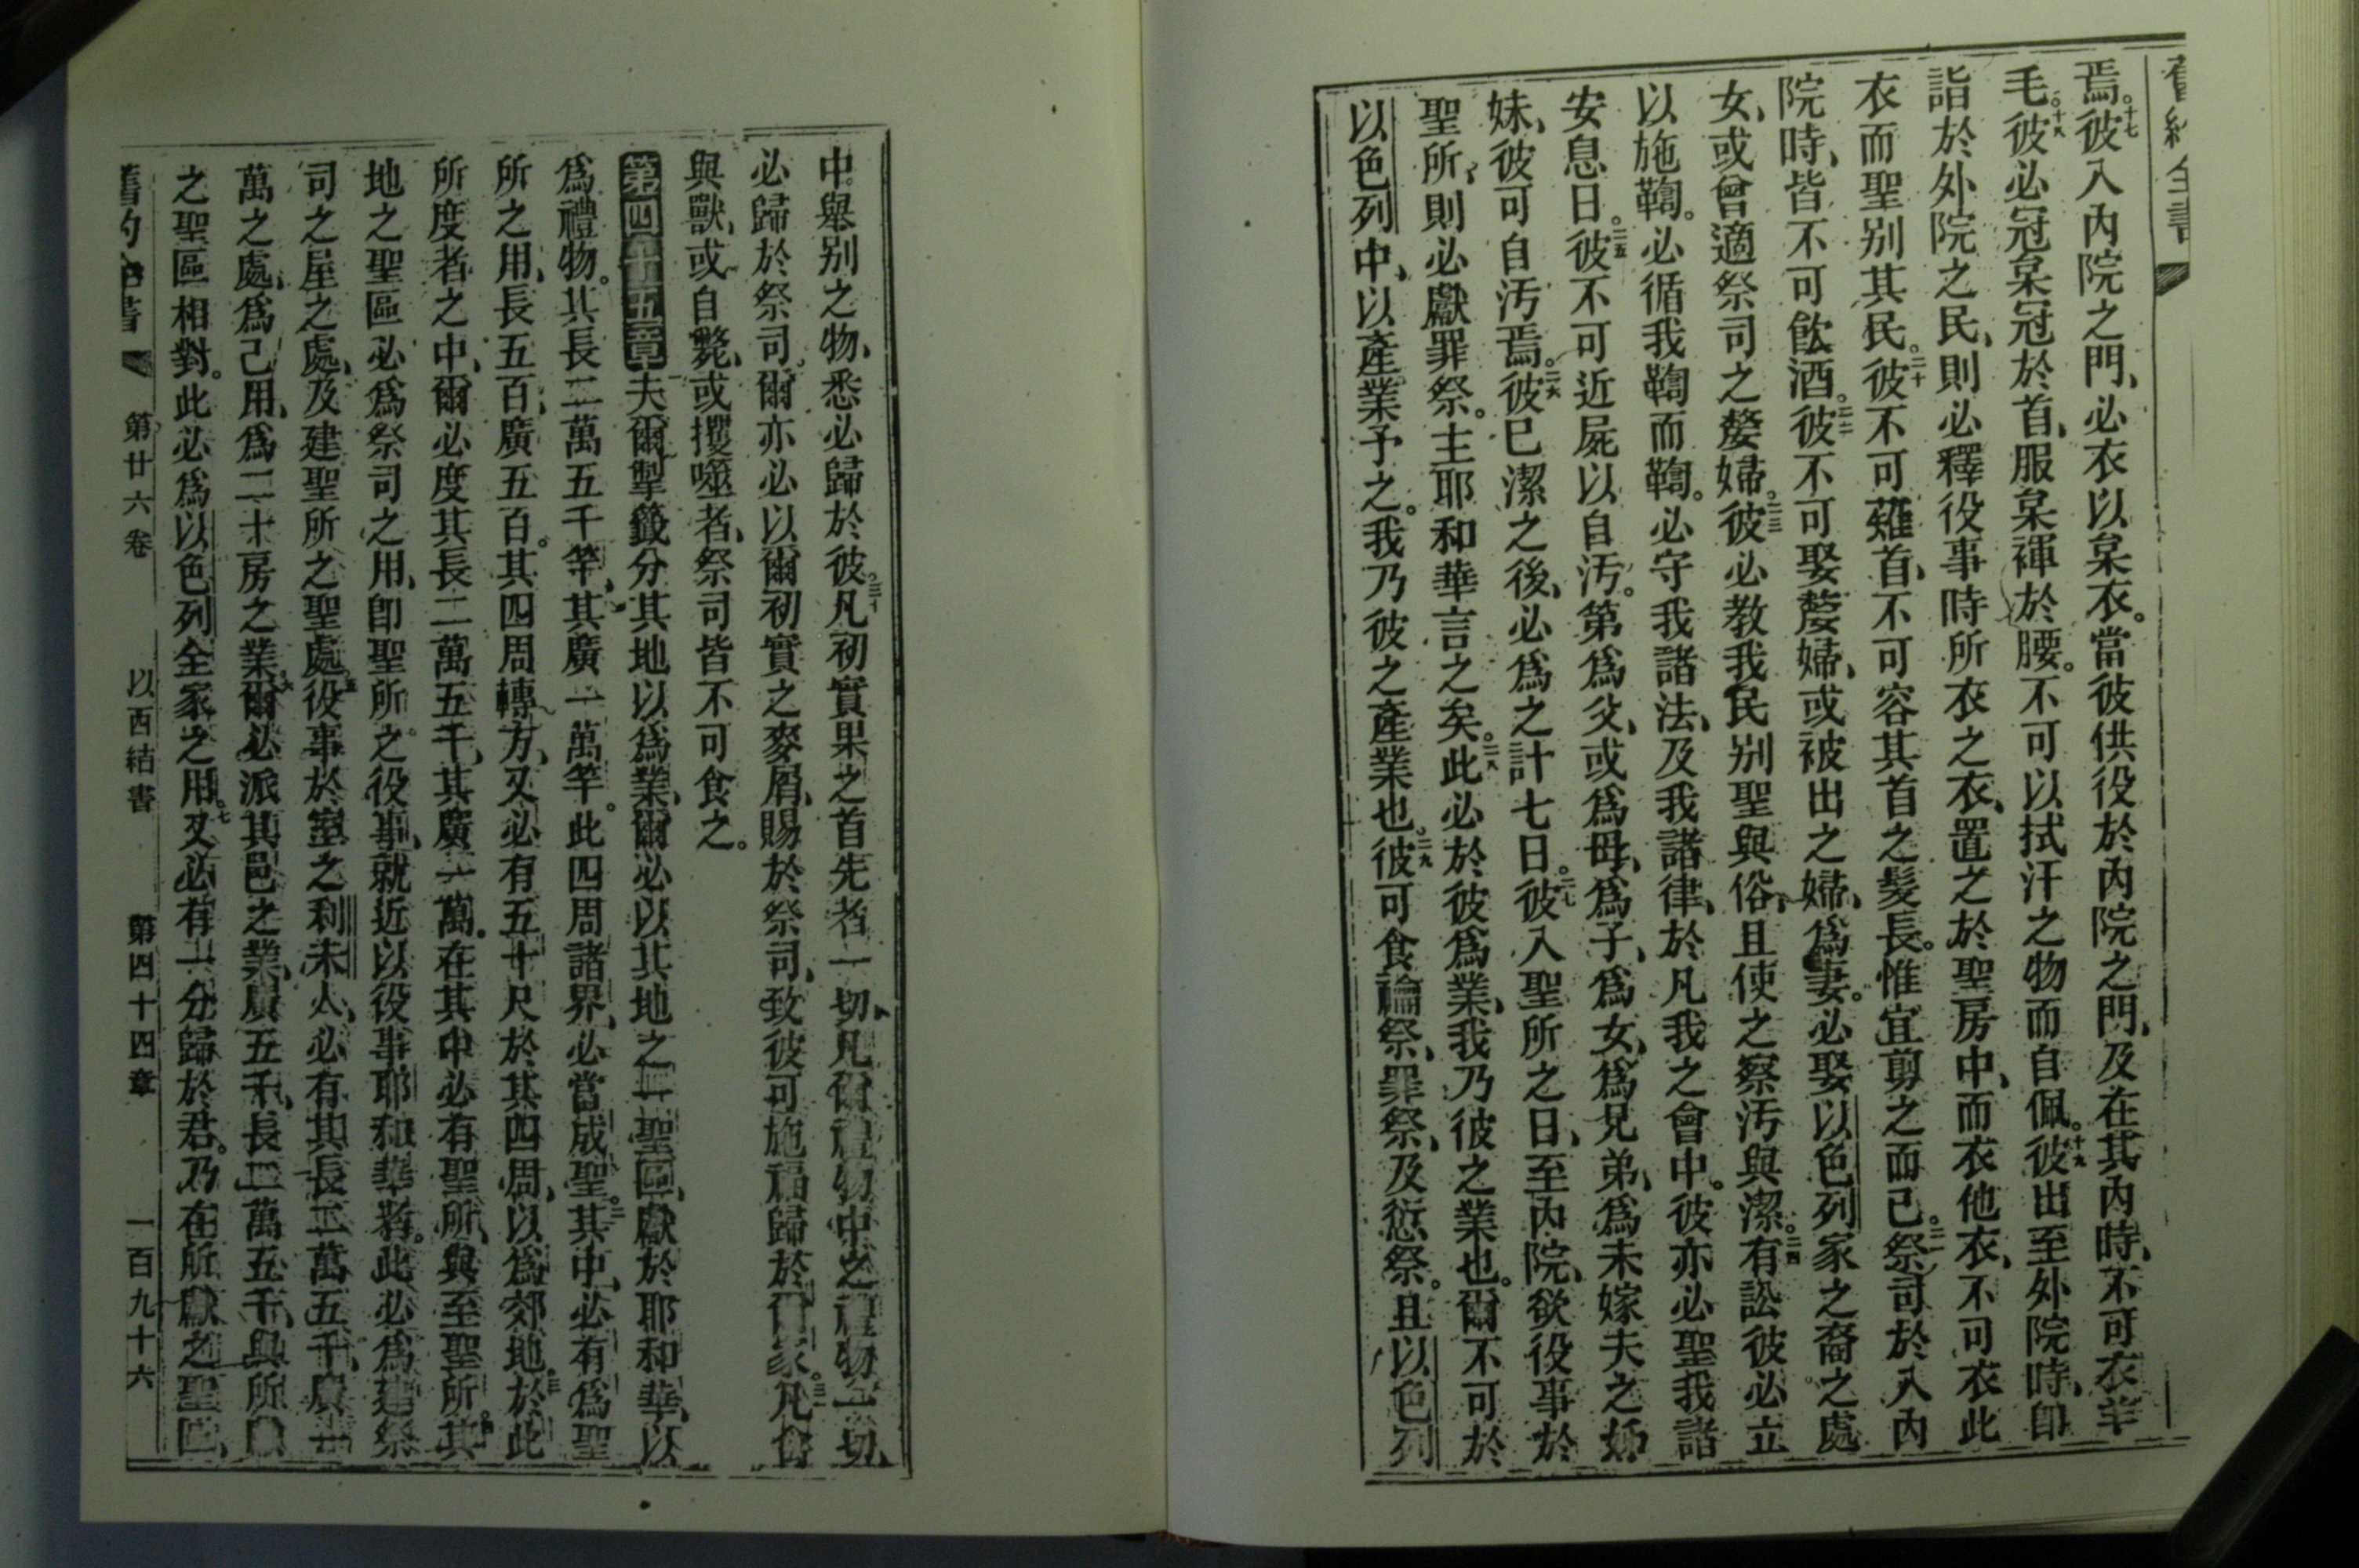 舊約全書
焉。十七彼入內院之門、必衣以枲衣。當彼供役於內院之門、及在其內時、不可衣羊
毛。十八彼必冠枲冠於首、服枲褌於腰。不可以拭汗之物而自佩。十九彼出至外院時、卽
詣於外院之民、則必釋役事時所衣之衣、置之於聖房中、而衣他衣、不可衣此
衣而聖别其民。二十彼不可薙首、不可容其首之髮長。惟宜剪之而已。二一祭司於入內
院時、皆不可飲酒。二二彼不可娶嫠婦、或被出之婦、爲妻。必娶以色列家之裔之處
女、或曾適祭司之嫠婦。二三彼必教我民别聖與俗、且使之察汚與潔。二四有訟彼必立
以施鞫。必循我鞫而鞫。必守我諸法、及我諸律、於凡我之會中。彼亦必聖我諸
安息日。二五彼不可近屍以自汚。第爲父、或爲母、爲子、爲女、爲兄弟、爲未嫁夫之姊
妹、彼可自汚焉。二六彼已潔之後、必爲之計七日。二七彼入聖所之日、至內院、欲役事於
聖所、則必獻罪祭。主耶和華言之矣。二八此必於彼爲業、我乃彼之業也。爾不可於
以色列中、以產業予之。我乃彼之產業也。二九彼可食論祭、罪祭、及愆祭。且以色列
中舉别之物、悉必歸於彼。三十凡初實果之首先者一切、凡爾禮物中之禮物一切、
必歸於祭司。爾亦必以爾初實之麥屑、賜於祭司、致彼可施福歸於爾家。三一凡禽
與獸、或自斃、或攫噬者、祭司皆不可食之。
第四十五章 夫爾掣籤分其地以爲業、爾必以其地之一聖區、獻於耶和華、以
爲禮物。其長二萬五千竿、其廣一萬竿。此四周諸界、必當成聖。二其中、必有爲聖
所之用、長五百、廣五百。其四周轉方、又必有五十尺於其四周、以爲郊地。三於此
所度者之中、爾必度其長二萬五千、其廣一萬。在其中必有聖所、與至聖所。四其
地之聖區必爲祭司之用、卽聖所之役事、就近以役事耶和華者。此必爲建祭
司之屋之處、及建聖所之聖處。五役事於室之利未人、必有其長二萬五千、廣一
萬之處、爲己用、爲二十房之業。六爾必派其邑之業、廣五千、長二萬五千、與所獻
之聖區相對。此必爲以色列全家之用。七又必有一分歸於君。乃在所獻之聖區、
舊約全書 第廿六卷 以西結書 第四十四章 一百九十六